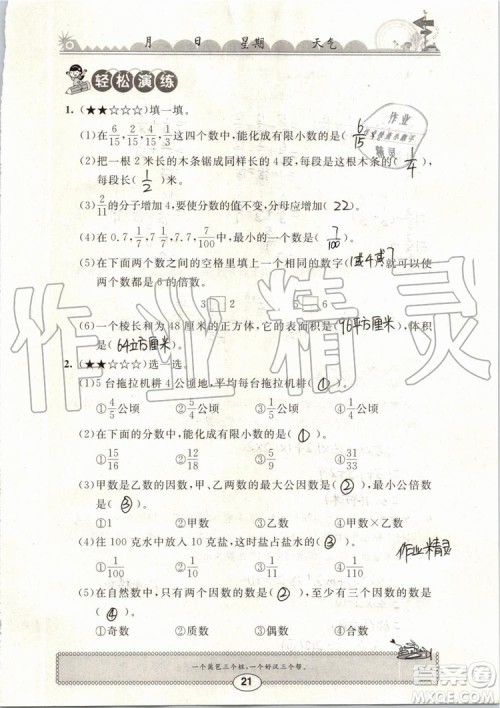 月 日 星期 天气
轻松演练
1. (★★☆☆☆)填一填。
(1)在6/15,2/15,4/15,7/15这四个数中,能化成有限小数的是( 6/15 )。
(2)把一根2米长的木条锯成同样长的4段,每段是这根木条的( 1/4 ),
每段长( 1/2 )米。
(3)2/11的分子增加4,要使分数的值不变,分母应增加( 22 )。
(4)在0.7,1/7,7.7,7/100中,最小的一个数是( 7/100 )。
(5)在下面两个数之间的空格里填上一个相同的数字( 1或4或7 )就可以使
两个数都是6的倍数。
3□2 5□6
(6)一个棱长和为48厘米的正方体,它的表面积是( 96平方厘米 ),体积
是( 64立方厘米 )。
2. (★★☆☆☆)选一选。
(1)5台拖拉机耕4公顷地,平均每台拖拉机耕( ① )。
①4/5公顷 ②5/4公顷 ③1/5公顷 ④1/4公顷
(2)在下面的分数中,能化成有限小数的是( ① )。
①15/16 ②16/17 ③32/33 ④31/33
(3)甲数是乙数的因数,甲、乙两数的最大公因数是( ② ),最小公倍数
是( ③ )。
①1 ②甲数 ③乙数 ④甲数×乙数
(4)往100克水中放入10克盐,这时盐占盐水的( ③ )。
①1/100 ②1/10 ③1/11 ④1/110
作业精灵
(5)在自然数中,只有两个因数的数是( ② ),至少有三个因数的数是
( ④ )。
①奇数 ②质数 ③偶数 ④合数
一个篱笆三个桩,一个好汉三个帮。
21
作业精灵
答案圈